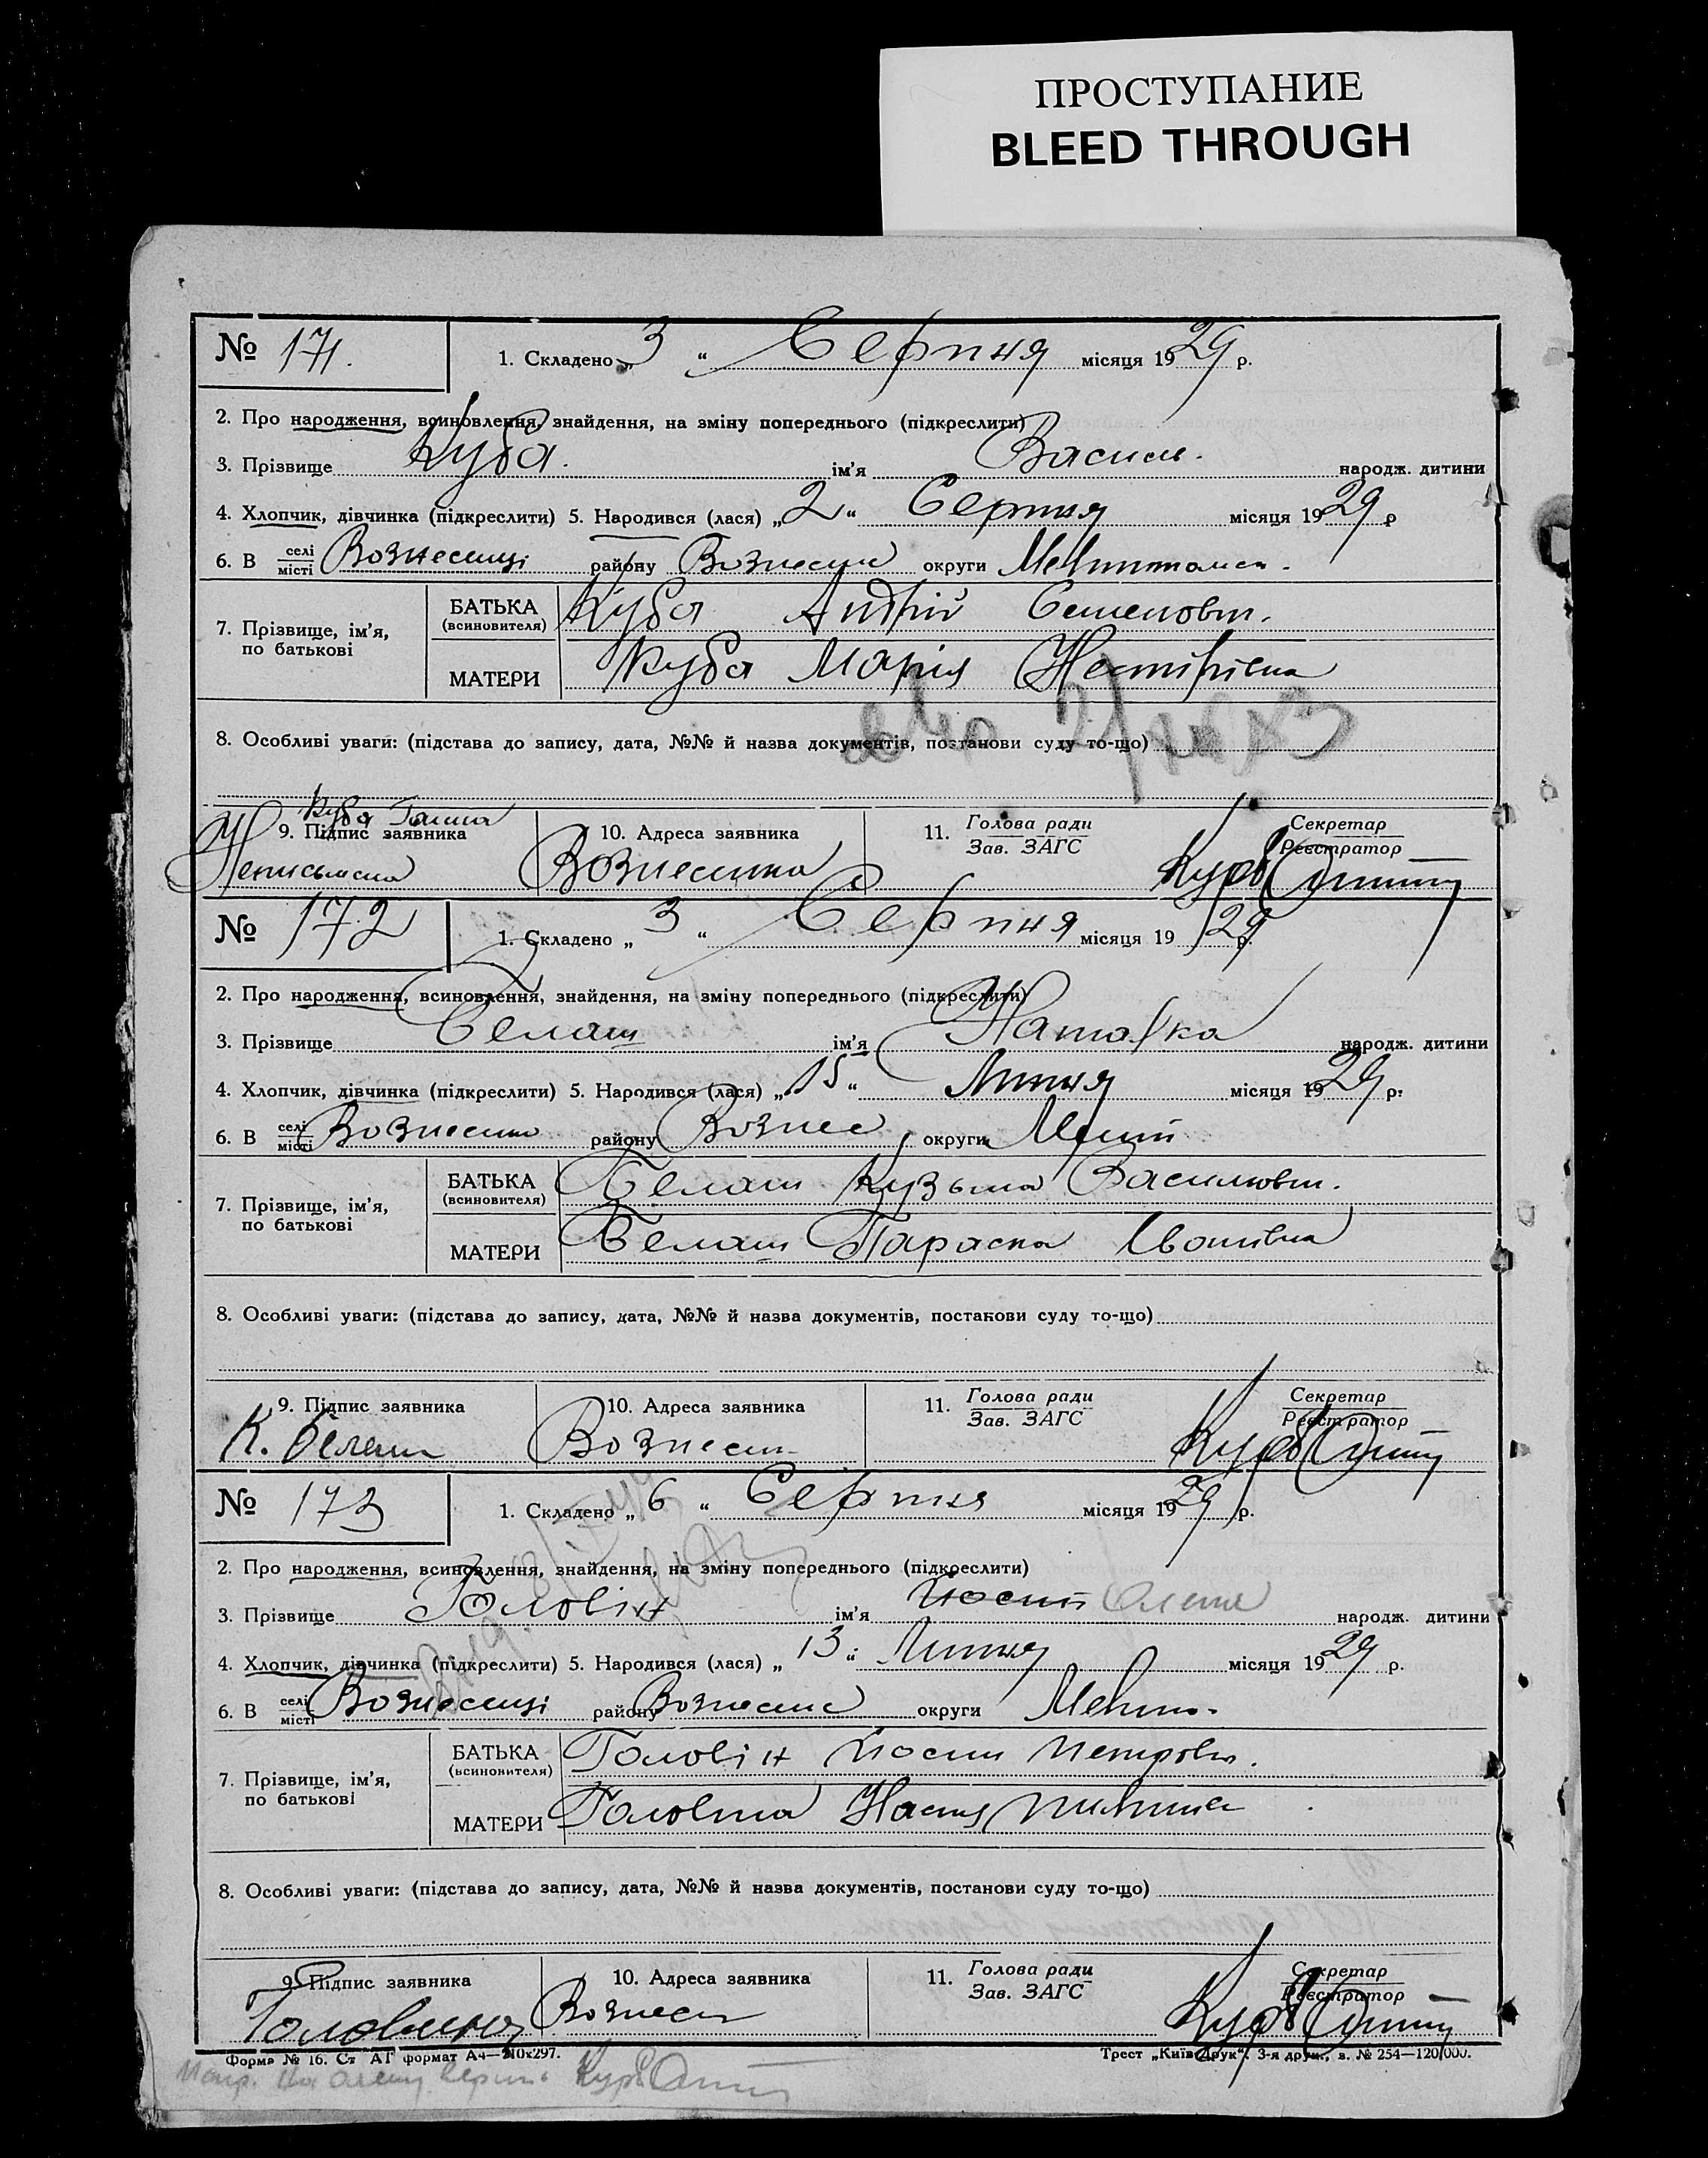 ПРОСТУПАНИЕ
BLEED THROUGH
№ 171. 1. Складено „3“ Серпня місяця 1929 р.
2. Про народження, всиновлення, знайдення, на зміну попереднього (підкреслити)
3. Прізвище Куба. ім'я Василь. народж. дитини
4. Хлопчик, дівчинка (підкреслити) 5. Народився (лася) „2“ Серпня місяця 1929 р
6. В селі місті Вознесенці району Вознесен округи Мелитопольск.
7. Прізвище, ім'я, по батькові
БАТЬКА (всиновителя) Куба Андрій Семенович.
МАТЕРИ Куба Марія Нестірівна
8. Особливі уваги: (підстава до запису, дата, №№ й назва документів, постанови суду то-що)
Куба Ганна
9. Підпис заявника 10. Адреса заявника 11. Голова ради Зав. ЗАГС Секретар Реєстратор
Неписьменна Вознесенка
№ 172 1. Складено „3“ Серпня місяця 1929 р.
2. Про народження, всиновлення, знайдення, на зміну попереднього (підкреслити)
3. Прізвище Белаш ім'я Наталка народж. дитини
4. Хлопчик, дівчинка (підкреслити) 5. Народився (лася) „15“ Липня місяця 1929 р.
6. В селі місті Вознесен району Вознес округи Меліт
7. Прізвище, ім'я, по батькові
БАТЬКА (всиновителя) Белаш Кузьма Василович.
МАТЕРИ Белаш Параска Іванівна
8. Особливі уваги: (підстава до запису, дата, №№ й назва документів, постанови суду то-що)
9. Підпис заявника 10. Адреса заявника 11. Голова ради Зав. ЗАГС Секретар Реєстратор
К. Белаш Вознесен
№ 173 1. Складено „6“ Серпня місяця 1929 р.
2. Про народження, всиновлення, знайдення, на зміну попереднього (підкреслити)
3. Прізвище Головін ім'я Йосип Олена народж. дитини
4. Хлопчик, дівчинка (підкреслити) 5. Народився (лася) „13“ Липня місяця 1929 р.
6. В селі місті Вознесенці району Вознесенс округи Мелито.
7. Прізвище, ім'я, по батькові
БАТЬКА (всиновителя) Головін Йосип Петрович.
МАТЕРИ Головіна Настя
8. Особливі уваги: (підстава до запису, дата, №№ й назва документів, постанови суду то-що)
9. Підпис заявника 10. Адреса заявника 11. Голова ради Зав. ЗАГС Секретар Реєстратор
Вознесен
Форма № 16. Ст АГ формат А4—210х297. Трест „Київ-Друк“. 3-я друк., з. № 254—120/000.